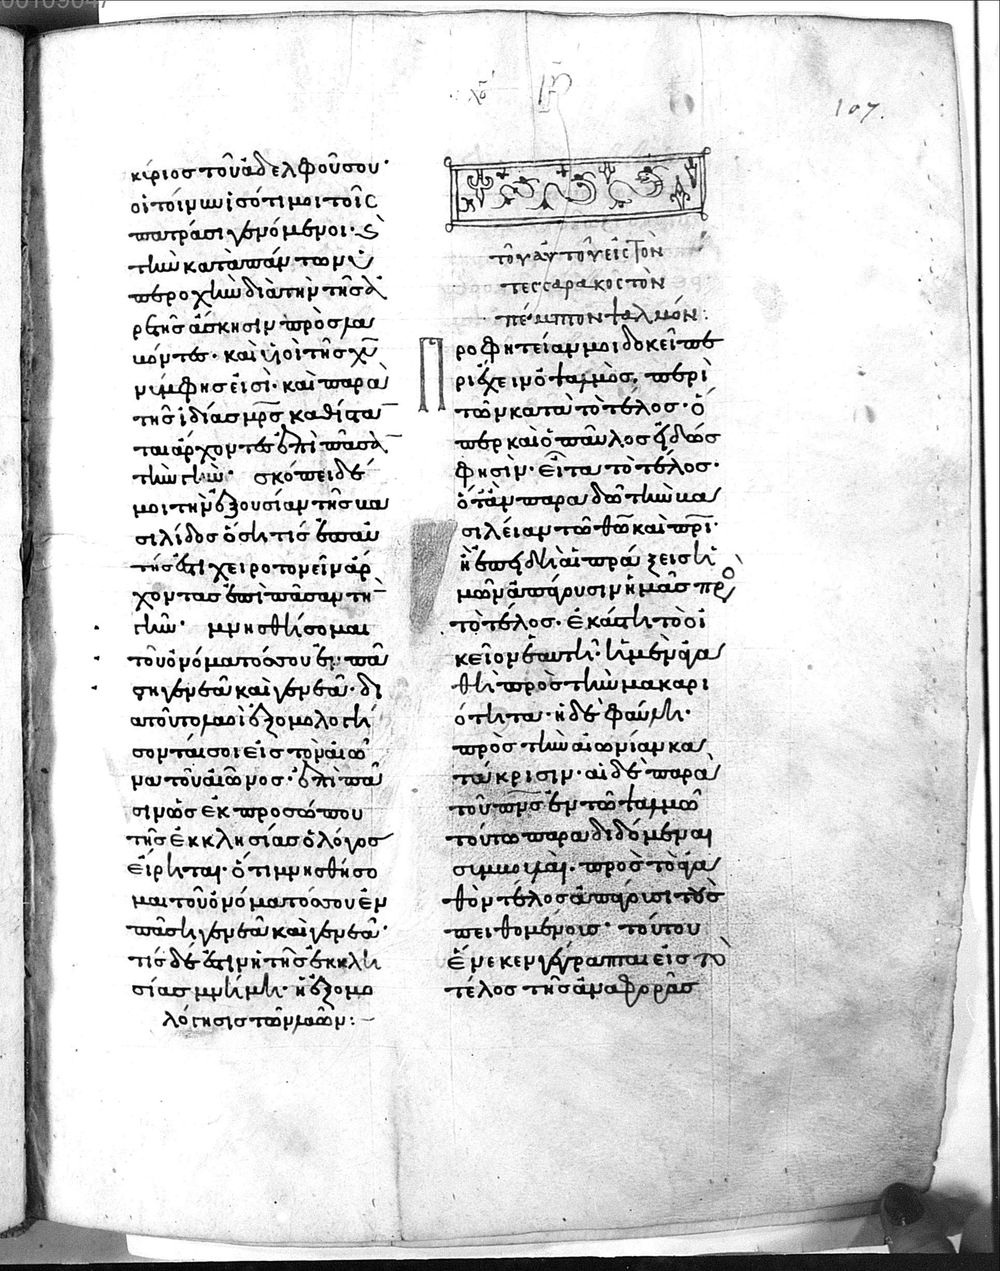 107.
κύριος τοῦ ἀδελφοῦ σου·
οἱ τοίνυν ἰσότιμοι τοῖς
πατράσι γενόμενοι· καὶ
τὴν κατὰ πάντων ὑ
περοχὴν διὰ τὴν τῆς ἀ
ρετῆς ἄσκησιν προσλα
βόντες· καὶ υἱοὶ τῆς χυ
νύμφης εἰσὶ· καὶ παρὰ
τῆς ἰδίας μρς καθίσταν
ται ἄρχοντες ἐπὶ πᾶσαν
τὴν γῆν· σκόπει δέ
μοι τὴν ἐξουσίαν τῆς βα
σιλίδος ὅση τίς ἐπ' αὐ
τῆς ἐστι χειροτονεῖν ἄρ
χοντας ἐπὶ πᾶσαν τὴν
γῆν· μνησθήσομαι
τοῦ ὀνόματός σου ἐν πά
σῃ γενεᾷ καὶ γενεᾷ· δι
ὰ τοῦτο λαοὶ ἐξομολογή
σονταί σοι εἰς τὸν αἰῶ
να τοῦ αἰῶνος· ἐπὶ πᾶ
σιν ὡς ἐκ προσώπου
τῆς ἐκκλησίας ὁ λόγος
εἴρηται· ὅτι μνησθήσο
μαι τοῦ ὀνόματός σου ἐν
πάσῃ γενεᾷ καὶ γενεᾷ·
τίς δέ ἐστιν ἡ τῆς ἐκκλη
σίας μνήμη· ἡ ἐξομο
λόγησις τῶν λαῶν:
τοῦ αὐτοῦ εἰς τὸν
τεσσαρακοστὸν
πέμπτον ψαλμόν:
Προφητείαν μοι δοκεῖ πε
ριέχειν ὁ ψαλμὸς, περὶ
τῶν κατὰ τὸ τέλος· ὅ
περ καὶ ὁ παῦλος εἰδὼς
φησὶν· εἶτα τὸ τέλος·
ὅταν παραδῶ τὴν βα
σιλείαν τῶ θῶ καὶ πρί·
ἢ ἐπειδὴ αἱ πράξεις ἡ
μῶν ἀπάγουσιν ἡμᾶς πρὸς
τὸ τέλος· ἑκάστη τὸ οἰ
κεῖον ἑαυτῆ· ἡ μὲν ἀγα
θὴ πρὸς τὴν μακαρι
ότητα· ἡ δὲ φαύλη·
πρὸς τὴν αἰωνίαν κα
τάκρισιν· αἱ δὲ παρὰ
τοῦ πνς ἐν τῶ ψαλμῶ
τούτω παραδιδόμεναι
συμβουλαὶ· πρὸς τὸ ἀγα
θὸν τέλος ἀπάγουσι τοὺς
πειθομένους· τούτου
ἕνεκεν γέγραπται εἰς τὸ
τέλος τῆς ἀναφορᾶς